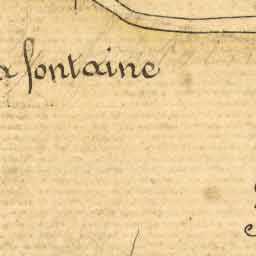 a fontaine